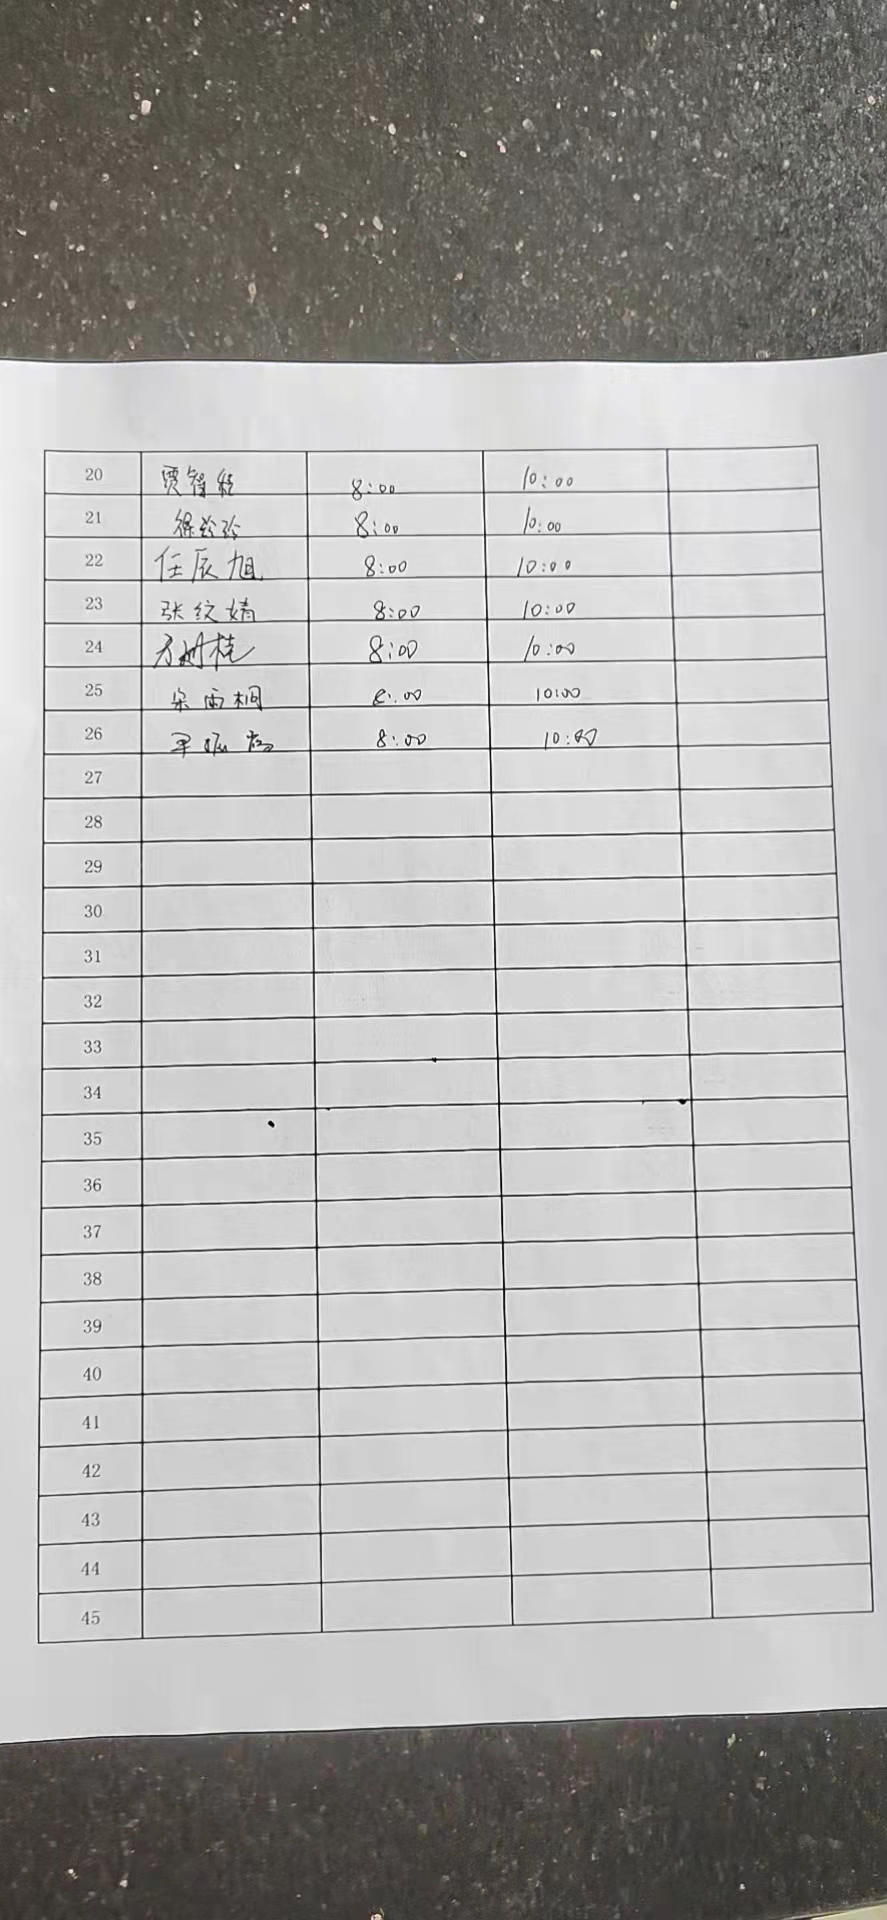 20 贾智程 8:00 10:00
21 徐玲玲 8:00 10:00
22 任辰旭 8:00 10:00
23 张纹婧 8:00 10:00
24 8:00 10:00
25 雨桐 8:00 10:00
26 8:00 10:00
27
28
29
30
31
32
33
34
35
36
37
38
39
40
41
42
43
44
45